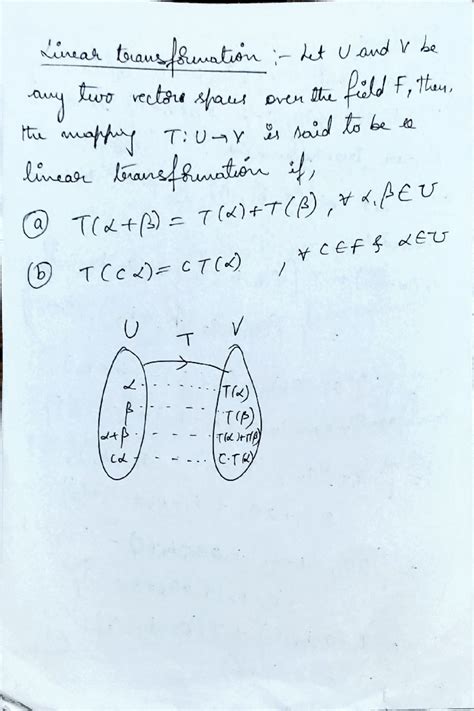 Linear transformation :- Let U and V be
any two vectors spaces over the field F, then,
the mapping T: U→V is said to be a
linear transformation if,
(a) T(α+β) = T(α)+T(β), ∀ α, β ∈ U
(b) T(cα) = cT(α) , ∀ c∈F & α∈U
U T V
α T(α)
β T(β)
α+β T(α)+T(β)
cα C·T(α)